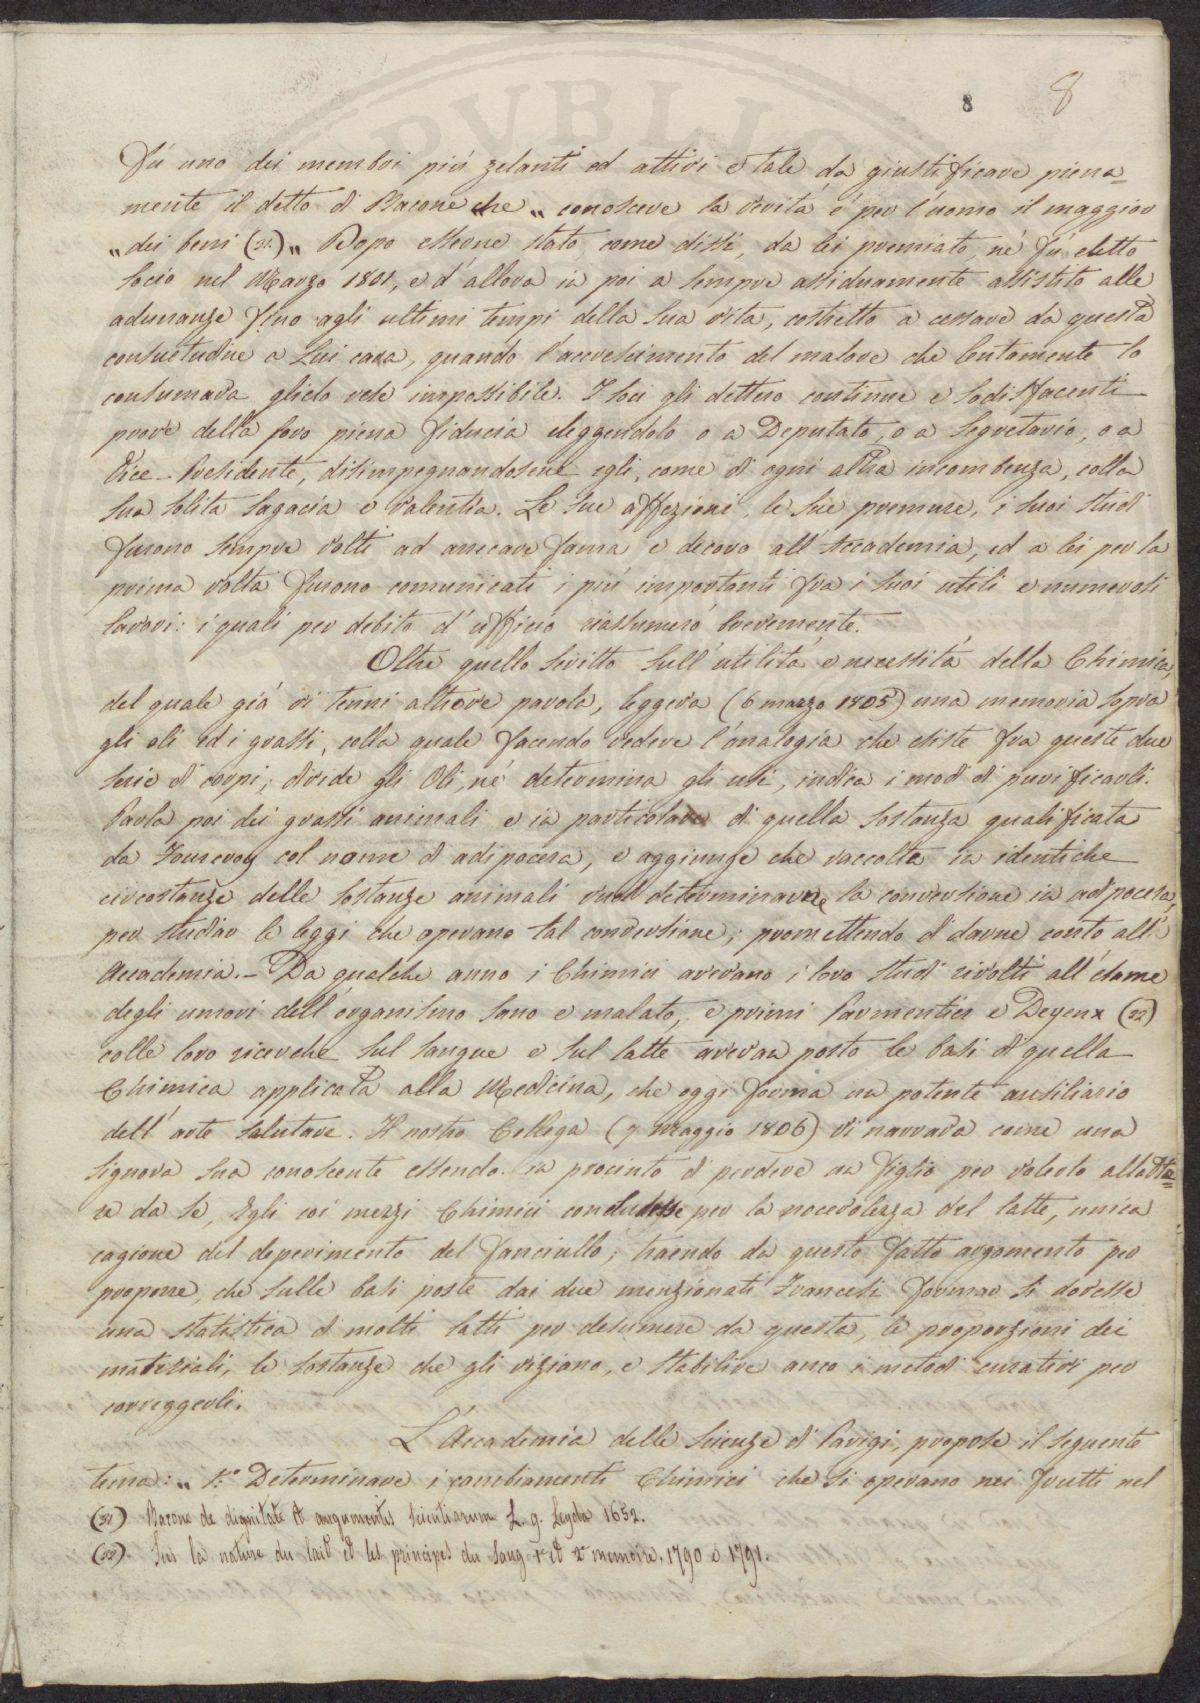 8 8
Fù uno dei membri più zelanti ed attivi e tale da giustificare piena=
mente il detto di Bacone che „ conoscere la verità è per l'uomo il maggior
„ dei beni (21) „ Dopo esserne stato, come dissi, da lei premiato, né fù eletto
Socio nel Marzo 1801, e d'allora in poi a sempre assiduamente assistito alle
adunanze fino agli ultimi tempi della sua vita, costretto a cessare da questa
consuetudine a Lui cara, quando l'accrescimento del malore che lentamente lo
consumava glielo rese impossibile. I Soci gli dettero continue e sodisfacenti
prove della loro piena fiducia eleggendolo o a Deputato, o a Segretario, o a
Vice-Presidente, disimpegnandosene egli, come di ogni altra incombenza, colla
sua solita sagacia e valentia. Le sue affezioni, le sue premure, i suoi studi
furono sempre volti ad arrecare fama e decoro all'Accademia, ed a lei per la
prima volta furono comunicati i più importanti fra i suoi utili e numerosi
lavori: i quali per debito d'ufficio riassumerò brevemente.
Oltre quello scritto sull'utilità e necessità della Chimica,
del quale già vi tenni altrove parola, leggeva (6 marzo 1805) una memoria sopra
gli oli ed i grassi, colla quale facendo vedere l'analogia che esiste fra queste due
serie di corpi; divide gli Oli, né determina gli usi, indica i modi di purificarli.
Parla poi dei grassi animali e in particolare di quella sostanza qualificata
da Fourcroy col nome di adipocera, e aggiunge che raccolte in identiche
circostanze delle sostanze animali vuol determinarne la conversione in adipocera,
per studiar le leggi che operano tal conversione; promettendo di darne conto all'
Accademia.- Da qualche anno i Chimici avevano i loro studi rivolti all'esame
degli umori dell'organismo sano e malato, e primi Parmentier e Deyeux (22)
colle loro ricerche sul sangue e sul latte avevan posto le basi di quella
Chimica applicata alla Medicina, che oggi forma un potente ausiliario
dell'arte salutare. Il nostro Collega (7 Maggio 1806) vi narrava come una
Signora sua conoscente essendo in procinto di perdere un figlio per volerlo allatta=
re da se, Egli coi mezzi Chimici concludesse per la nocevolezza del latte, unica
cagione del deperimento del fanciullo; traendo da questo fatto argomento per
proporre, che sulle basi poste dai due menzionati Francesi formar si dovesse
una statistica di molti latti per desumere da questa, le proporzioni dei
materiali, le sostanze che gli viziano, e stabilire anco i metodi curativi per
correggerli.
L'Accademia delle Scienze di Parigi, propose il seguente
tema: „ 1.° Determinare i cambiamenti Chimici che si operano nei frutti nel
(21) Bacone de dignitate et augumentis scientiarum L. 9. Leyda 1652.
(22) Sur la nature du lait et les principes du sang 1er et 2e memoire, 1790 e 1791.